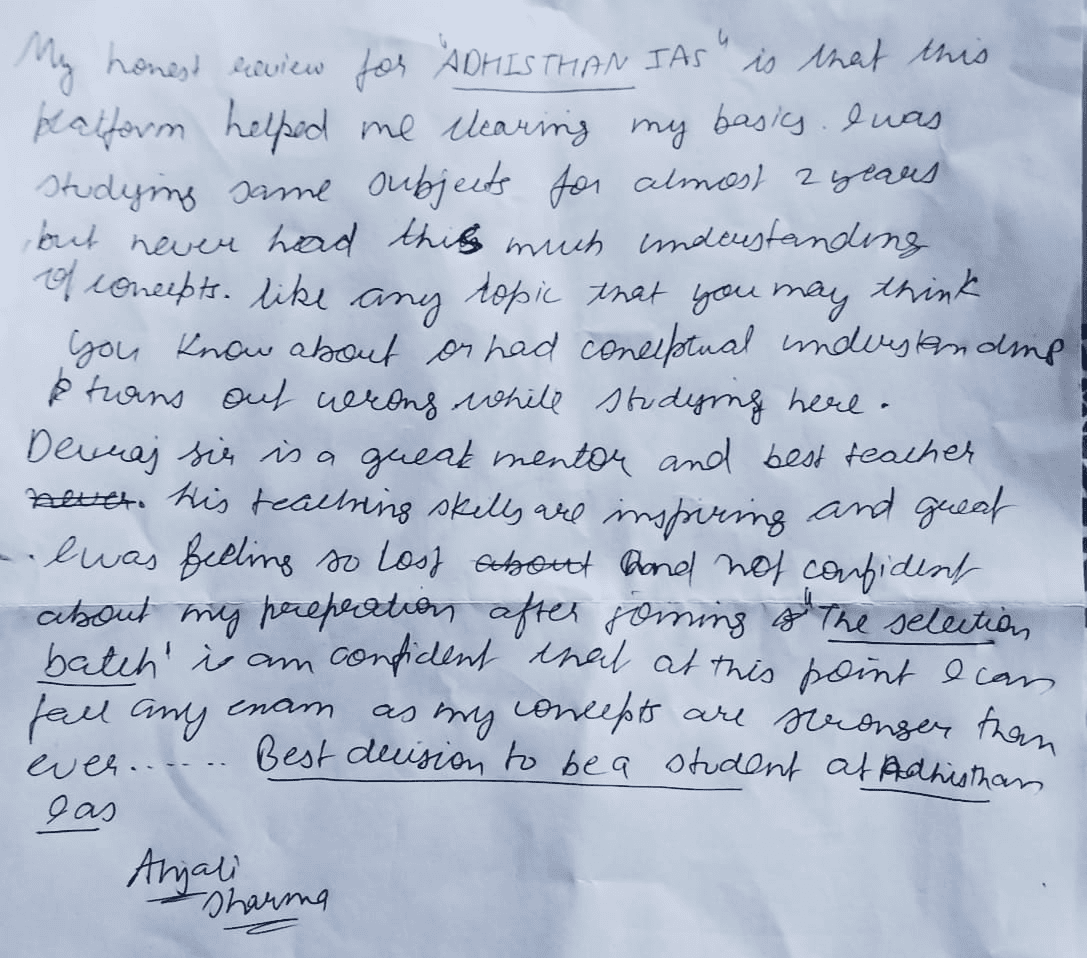 My honest review for "ADHISTHAN IAS" is that this
platform helped me clearing my basics. I was
studying same subjects for almost 2 years
but never had this much understanding
of concepts. like any topic that you may think
you know about or had conceptual understanding
turns out wrong while studying here.
Devraj sir is a great mentor and best teacher
never. his teaching skills are inspiring and great
. I was feeling so lost about and not confident
about my preperation after joining "The selection
batch' i am confident that at this point I can
fall any exam as my concepts are stronger than
ever....... Best decision to be a student at Adhisthan
Ias
Anjali
Sharma